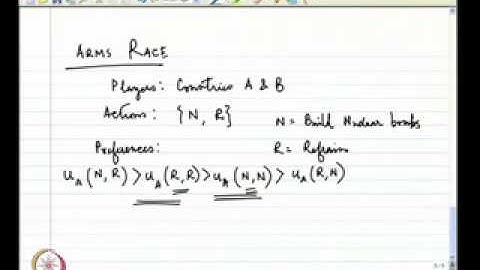 ARMS RACE
Players: Countries A & B
Actions: {N, R} N = Build Nuclear bombs
Preferences: R = Refrain
u_A(N,R) > u_A(R,R) > u_A(N,N) > u_A(R,N)